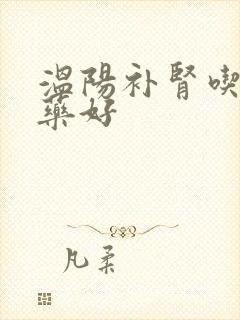 温陽补腎喫
藥好
凡柔